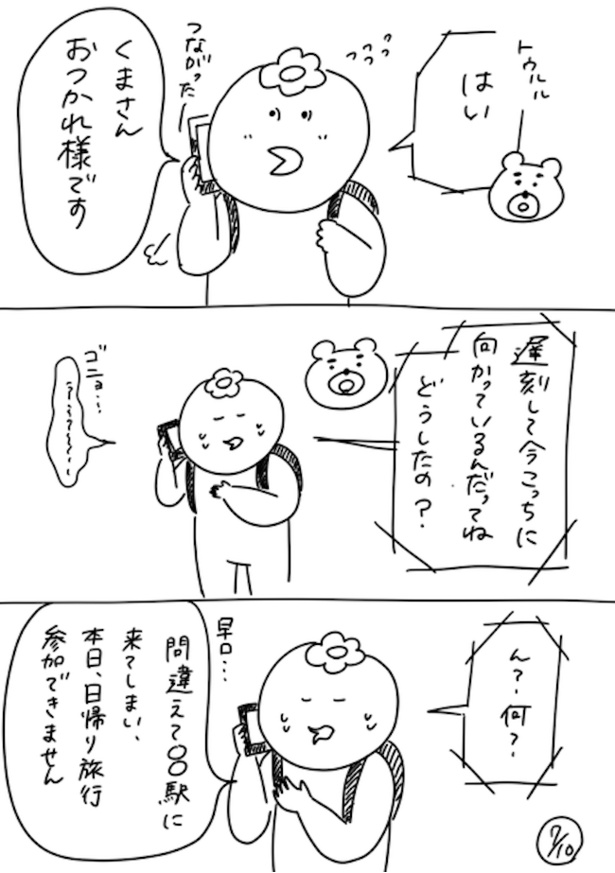 トゥルル
はい
つながった
くまさん
おつかれ様です
遅刻して今こっちに
向かっているんだってね
どうしたの？
ゴニョ…
ん？何？
早口…
間違えて〇〇駅に
来てしまい、
本日、日帰り旅行
参加できません
7/10